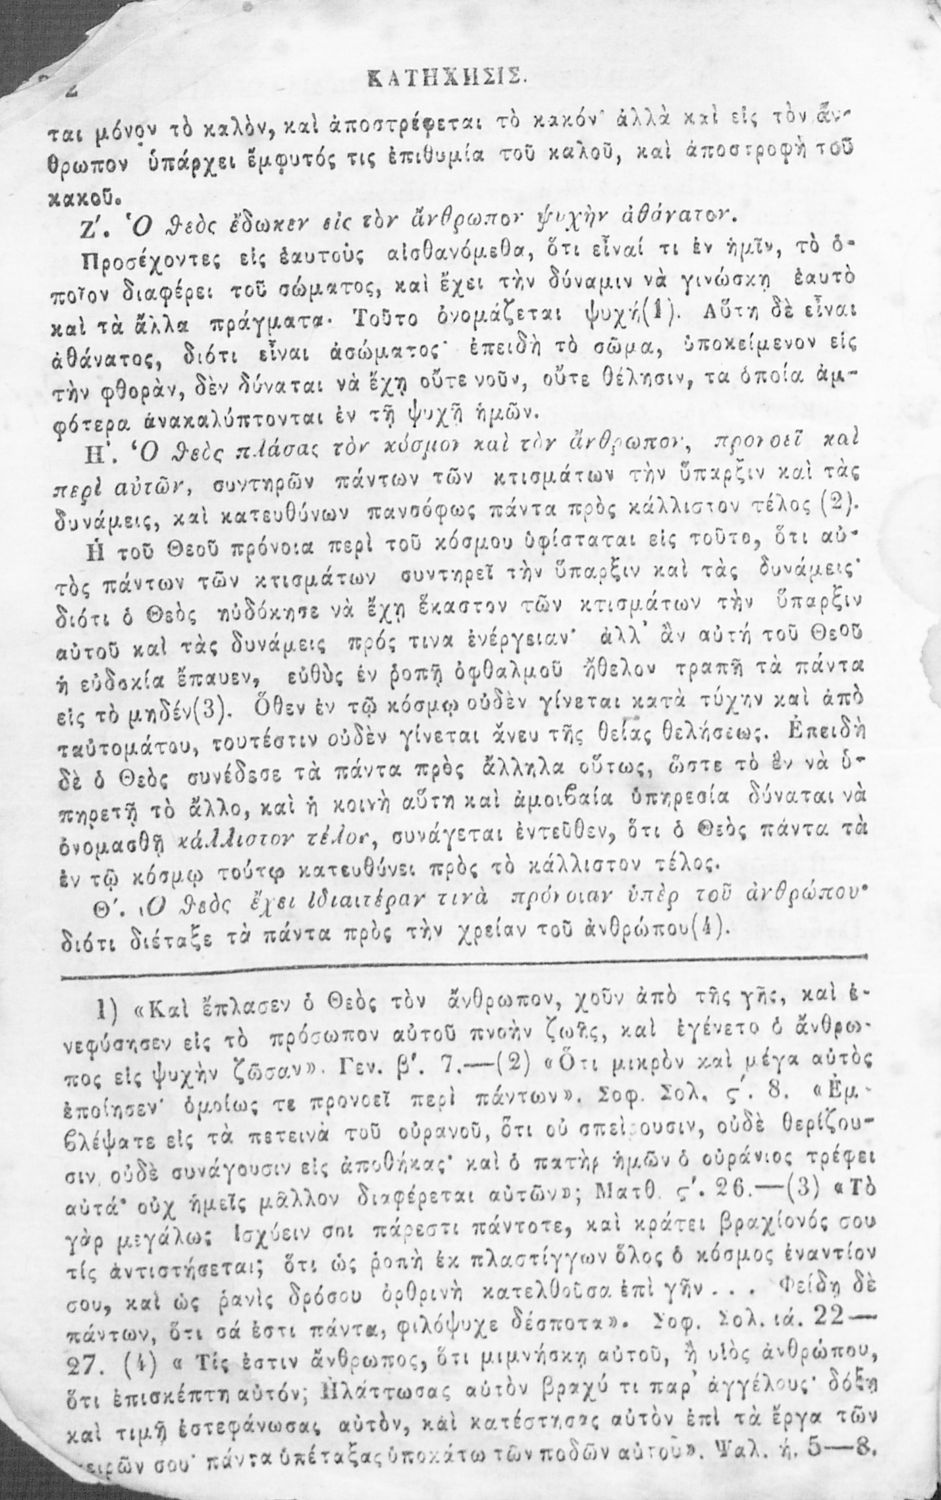 2
ΚΑΤΗΧΗΣΙΣ.
ται μόνον τὸ καλὸν, καὶ ἀποστρέφεται τὸ κακόν· ἀλλὰ καὶ εἰς τὸν ἄν-
θρωπον ὑπάρχει ἔμφυτός τις ἐπιθυμία τοῦ καλοῦ, καὶ ἀποστροφὴ τοῦ
κακοῦ.
Ζ΄. Ὁ θεὸς ἔδωκεν εἰς τὸν ἄνθρωπον ψυχὴν ἀθάνατον.
Προσέχοντες εἰς ἑαυτοὺς αἰσθανόμεθα, ὅτι εἶναί τι ἐν ἡμῖν, τὸ ὁ-
ποῖον διαφέρει τοῦ σώματος, καὶ ἔχει τὴν δύναμιν νὰ γινώσκῃ ἑαυτὸ
καὶ τὰ ἄλλα πράγματα· Τοῦτο ὀνομάζεται ψυχή(1). Αὕτη δὲ εἶναι
ἀθάνατος, διότι εἶναι ἀσώματος· ἐπειδὴ τὸ σῶμα, ὑποκείμενον εἰς
τὴν φθορὰν, δὲν δύναται νὰ ἔχῃ οὔτε νοῦν, οὔτε θέλησιν, τα ὁποία ἀμ-
φότερα ἀνακαλύπτονται ἐν τῇ ψυχῇ ἡμῶν.
Η΄. Ὁ θεὸς πλάσας τὸν κόσμον καὶ τὸν ἄνθρωπον, προνοεῖ καὶ
περὶ αὐτῶν, συντηρῶν πάντων τῶν κτισμάτων τὴν ὕπαρξιν καὶ τὰς
δυνάμεις, καὶ κατευθύνων πανσόφως πάντα πρὸς κάλλιστον τέλος (2).
Ἡ τοῦ Θεοῦ πρόνοια περὶ τοῦ κόσμου ὑφίσταται εἰς τοῦτο, ὅτι αὐ-
τὸς πάντων τῶν κτισμάτων συντηρεῖ τὴν ὕπαρξιν καὶ τὰς δυνάμεις·
διότι ὁ Θεὸς ηὐδόκησε νὰ ἔχῃ ἕκαστον τῶν κτισμάτων τὴν ὕπαρξιν
αὐτοῦ καὶ τὰς δυνάμεις πρός τινα ἐνέργειαν· ἀλλ᾽ ἂν αὐτή τοῦ Θεοῦ
ἡ εὐδοκία ἔπαυεν, εὐθὺς ἐν ῥοπῇ ὀφθαλμοῦ ἤθελον τραπῆ τὰ πάντα
εἰς τὸ μηδέν(3). Ὅθεν ἐν τῷ κόσμῳ οὐδὲν γίνεται κατὰ τύχην καὶ ἀπὸ
ταὐτομάτου, τουτέστιν οὐδὲν γίνεται ἄνευ τῆς θείας θελήσεως. Ἐπειδὴ
δὲ ὁ Θεὸς συνέδεσε τὰ πάντα πρὸς ἄλληλα οὕτως, ὥστε τὸ ἓν νὰ ὑ-
πηρετῇ τὸ ἄλλο, καὶ ἡ κοινὴ αὕτη καὶ ἀμοιβαία ὑπηρεσία δύναται νὰ
ὀνομασθῇ κάλλιστον τέλος, συνάγεται ἐντεῦθεν, ὅτι ὁ Θεὸς πάντα τὰ
ἐν τῷ κόσμῳ τούτῳ κατευθύνει πρὸς τὸ κάλλιστον τέλος.
Θ΄. Ὁ θεὸς ἔχει ἰδιαιτέραν τινὰ πρόνοιαν ὑπὲρ τοῦ ἀνθρώπου·
διότι διέταξε τὰ πάντα πρὸς τὴν χρείαν τοῦ ἀνθρώπου(4).
1) «Καὶ ἔπλασεν ὁ Θεὸς τὸν ἄνθρωπον, χοῦν ἀπὸ τῆς γῆς, καὶ ἐ-
νεφύσησεν εἰς τὸ πρόσωπον αὐτοῦ πνοὴν ζωῆς, καὶ ἐγένετο ὁ ἄνθρω-
πος εἰς ψυχὴν ζῶσαν». Γεν. β΄. 7.—(2) «Ὅτι μικρὸν καὶ μέγα αὐτὸς
ἐποίησεν· ὁμοίως τε προνοεῖ περὶ πάντων». Σοφ. Σολ. ς΄. 8. «Ἐμ-
βλέψατε εἰς τὰ πετεινὰ τοῦ οὐρανοῦ, ὅτι οὐ σπείρουσιν, οὐδὲ θερίζου-
σιν, οὐδὲ συνάγουσιν εἰς ἀποθήκας· καὶ ὁ πατὴρ ἡμῶν ὁ οὐράνιος τρέφει
αὐτά· οὐχ ἡμεῖς μᾶλλον διαφέρεται αὐτῶν»; Ματθ. ς΄. 26.—(3) «Τὸ
γὰρ μεγάλως ἰσχύειν σοι πάρεστι πάντοτε, καὶ κράτει βραχίονός σου
τίς ἀντιστήσεται; ὅτι ὡς ῥοπὴ ἐκ πλαστίγγων ὅλος ὁ κόσμος ἐναντίον
σου, καὶ ὡς ῥανὶς δρόσου ὀρθρινὴ κατελθοῦσα ἐπὶ γῆν . . . Φείδῃ δὲ
πάντων, ὅτι σά ἐστι πάντα, φιλόψυχε δέσποτα». Σοφ. Σολ. ιά. 22—
27. (4) « Τίς ἐστιν ἄνθρωπος, ὅτι μιμνήσκῃ αὐτοῦ, ἢ υἱὸς ἀνθρώπου,
ὅτι ἐπισκέπτη αὐτόν; Ἠλάττωσας αὐτὸν βραχύ τι παρ᾽ ἀγγέλους· δόξῃ
καὶ τιμῇ ἐστεφάνωσας αὐτὸν, καὶ κατέστησας αὐτὸν ἐπὶ τὰ ἔργα τῶν
χειρῶν σου· πάντα ὑπέταξας ὑποκάτω τῶν ποδῶν αὐτοῦ». Ψαλ. ή. 5—8.